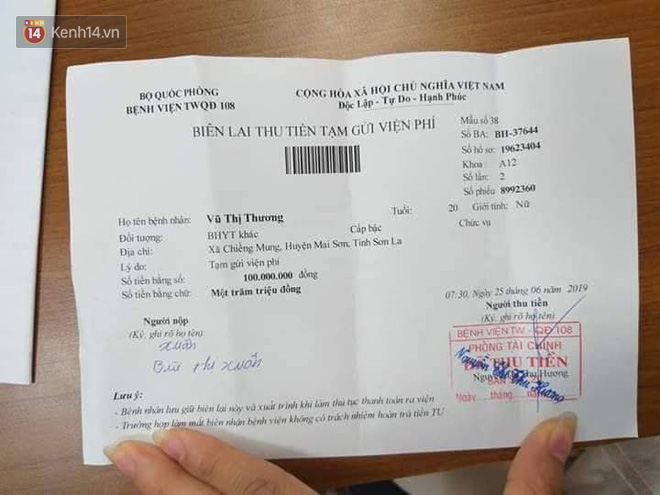 14 Kenh14.vn
BỘ QUỐC PHÒNG
BỆNH VIỆN TWQĐ 108
CỘNG HÒA XÃ HỘI CHỦ NGHĨA VIỆT NAM
Độc Lập - Tự Do - Hạnh Phúc
BIÊN LAI THU TIỀN TẠM GỬI VIỆN PHÍ
Mẫu số 38
Số BA: BH-37644
Số hồ sơ: 19623404
Khoa: A12
Số lần: 2
Số phiếu 8992360
Họ tên bệnh nhân: Vũ Thị Thương Tuổi: 20 Giới tính: Nữ
Đối tượng: BHYT khác Cấp bậc Chức vụ
Địa chỉ: Xã Chiềng Mung, Huyện Mai Sơn, Tỉnh Sơn La
Lý do: Tạm gửi viện phí
Số tiền bằng số: 100.000.000 đồng
Số tiền bằng chữ: Một trăm triệu đồng
07:30, Ngày 25 tháng 06 năm 2019
Người nộp
(Ký, ghi rõ họ tên)
Xuân
Thị Xuân
Người thu tiền
(Ký, ghi rõ họ tên)
BỆNH VIỆN TW - QĐ 108
PHÒNG TÀI CHÍNH
THU TIỀN
Ngày tháng
Lưu ý:
- Bệnh nhân lưu giữ biên lai này và xuất trình khi làm thủ tục thanh toán ra viện
- Trường hợp làm mất biên nhận bệnh viện không có trách nhiệm hoàn trả tiền TU